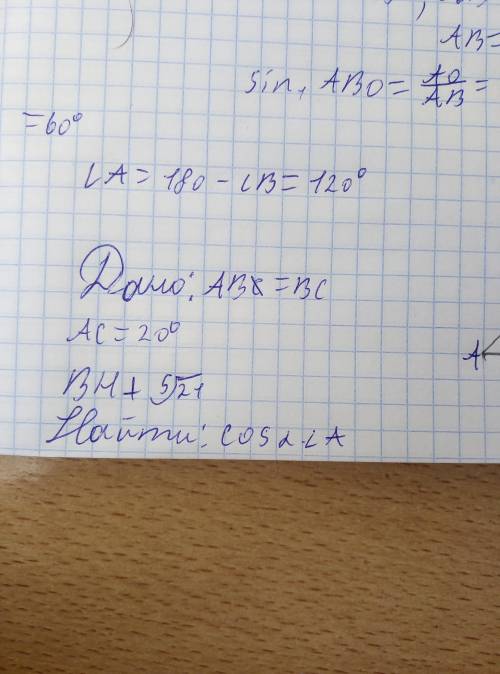 AB=
sin, ABO = AO/AB =
=60°
∠A = 180 - ∠B = 120°
Дано: AB = BC
AC = 20°
BH + 5√21
Найти: cos ∠A
A